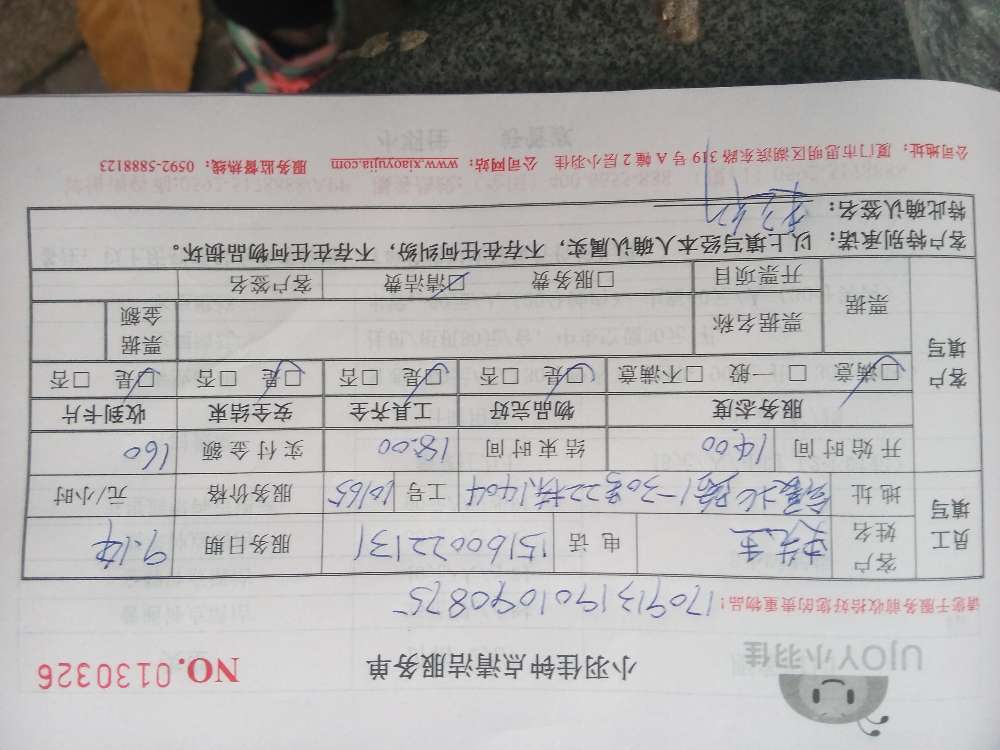 UJOY小羽佳
小羽佳钟点清洁服务单
NO.0130326
请您于服务前收拾好您的贵重物品!
170913190109 0875
员工填写
客户姓名 先生 电话 15160022131 服务日期 9.14
地址 1-30号22栋1404 工号 10165 服务价格 元/小时
开始时间 14:00 结束时间 18:00 实付金额 160
客户填写
服务态度 物品完好 工具齐全 安全结束 收到卡片
□满意 □一般 □不满意 □是 □否 □是 □否 □是 □否 □是 □否
票据 票据名称 票据金额
开票项目 □服务费 □清洁费 客户签名
客户特别承诺:以上填写经本人确认属实,不存在任何纠纷,不存在任何物品损坏。
特此确认签名:
公司地址:厦门市思明区湖滨东路 319 号 A 幢 2 层小羽佳 公司网站:www.xiaoyujia.com 服务监督热线:0592-5888123